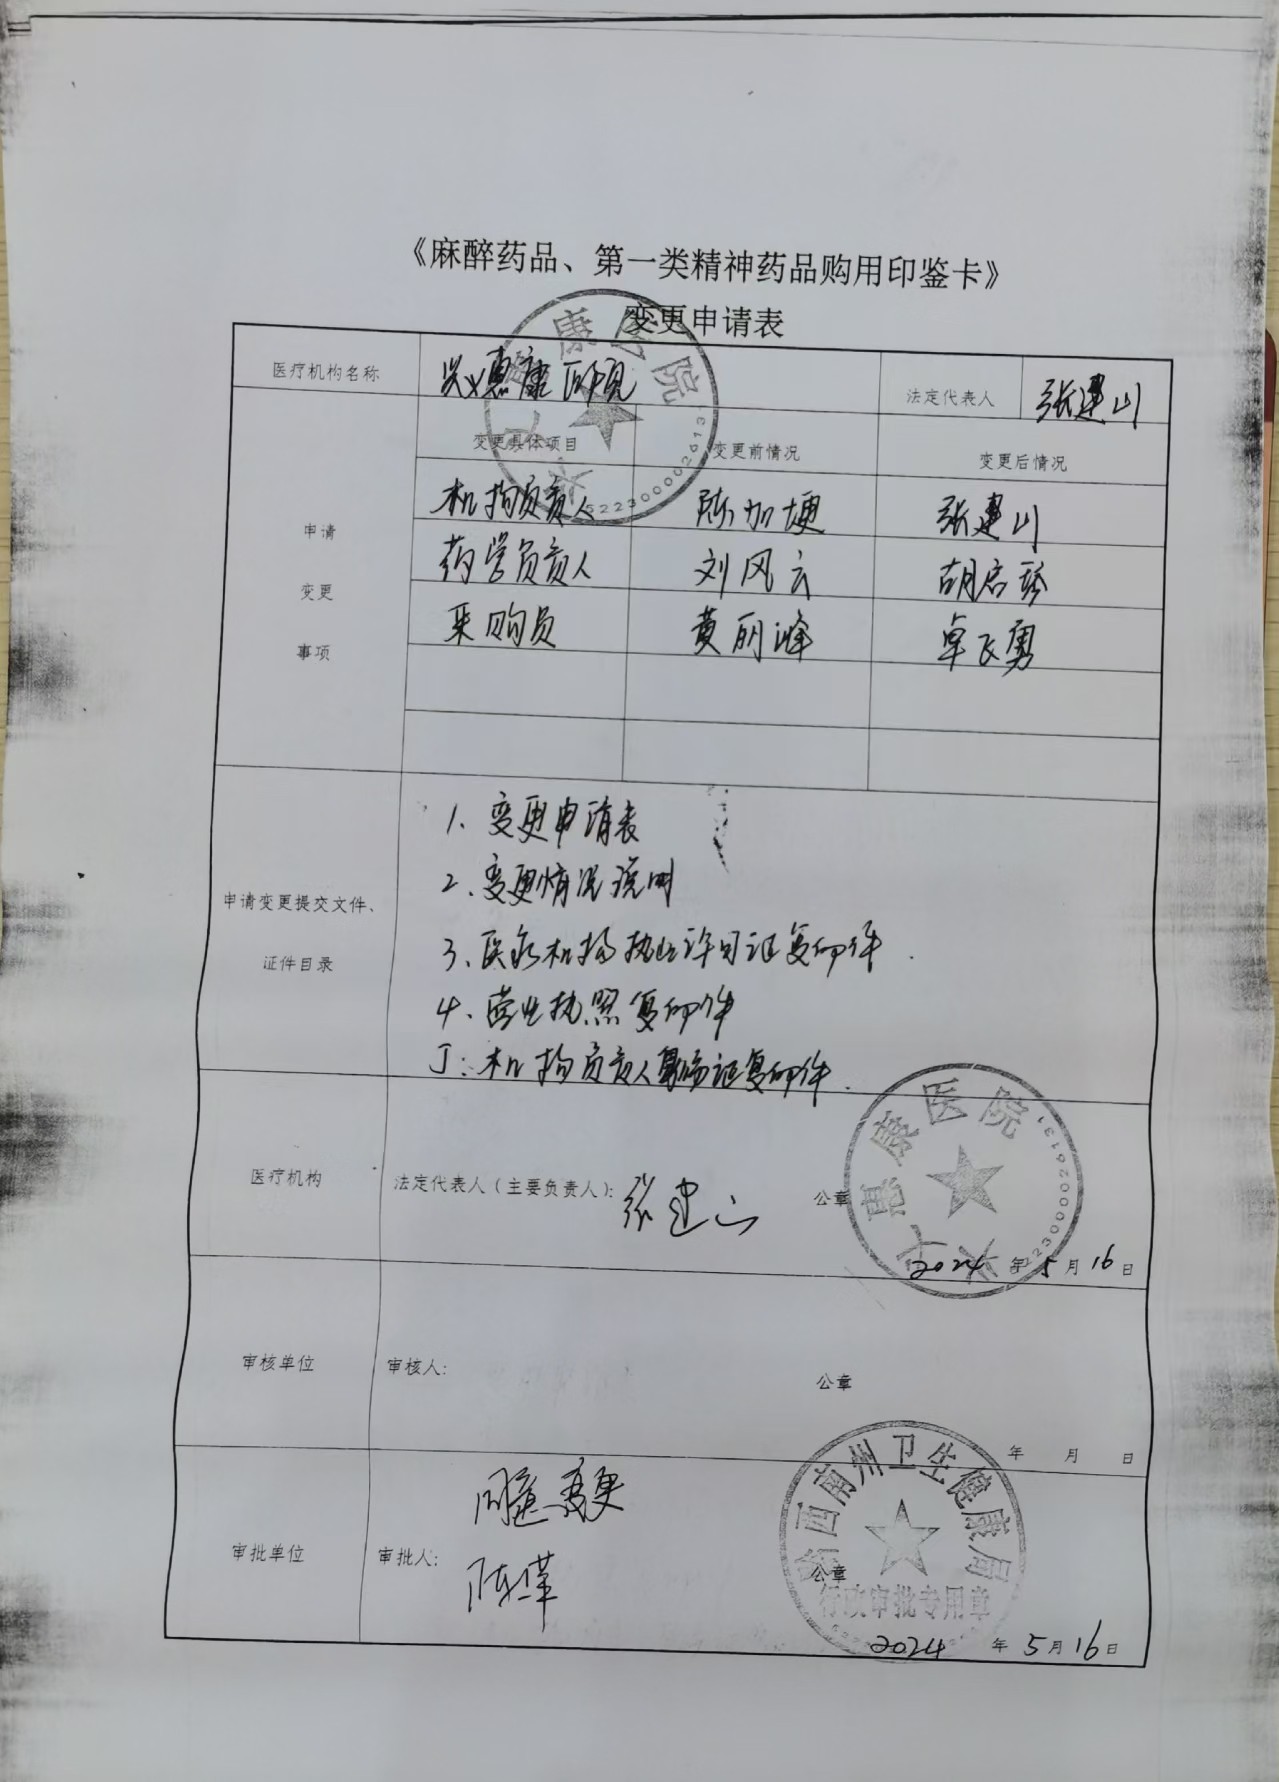 《麻醉药品、第一类精神药品购用印鉴卡》
变更申请表
医疗机构名称 兴义惠康医院 法定代表人 张建山
申请变更事项
变更具体项目 变更前情况 变更后情况
机构负责人 陈加梗 张建山
药学负责人 刘风云 胡启珍
采购员 黄丽峰 卓飞勇
申请变更提交文件、
证件目录
1、变更申请表
2、变更情况说明
3、医疗机构执业许可证复印件.
4、营业执照复印件
5:机构负责人身份证复印件.
医疗机构 法定代表人(主要负责人): 张建山 公章
兴义惠康医院
5223000026131
2024年5月16日
审核单位 审核人: 公章
年 月 日
同意变更
审批单位 审批人: 陈萍 公章
黔西南州卫生健康局
行政审批专用章
2024年5月16日